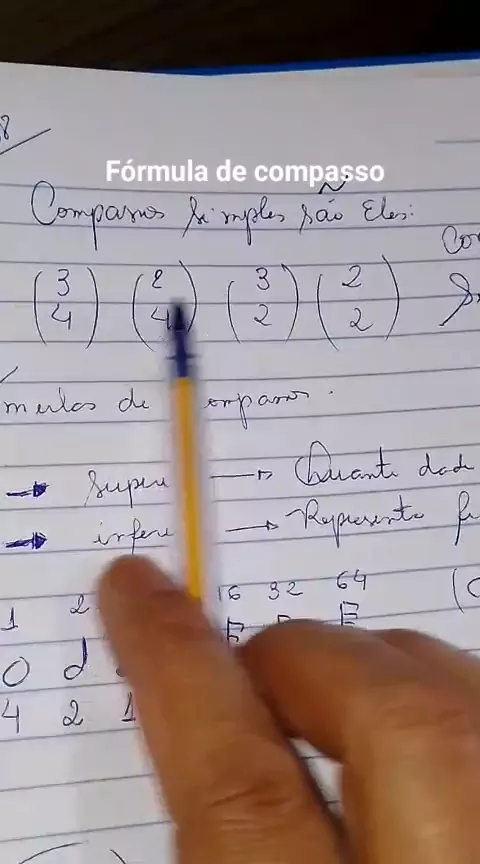 Fórmula de compasso
Compassos Simples são Eles:
3 2 3 2
4 4 2 2
mulas de ompasso.
→ Super → Quantidade
→ infer → Representa
1 2 16 32 64
4 2 1